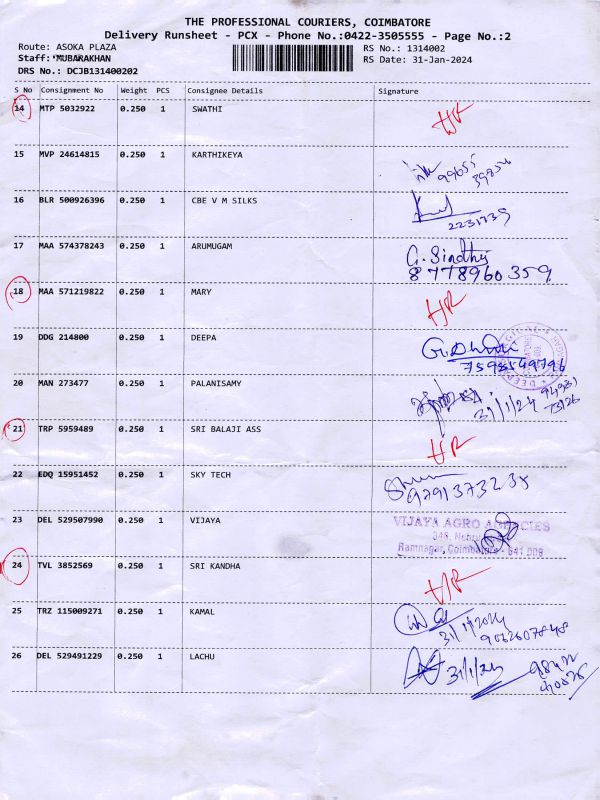 THE PROFESSIONAL COURIERS, COIMBATORE
Delivery Runsheet - PCX - Phone No.:0422-3505555 - Page No.:2
Route: ASOKA PLAZA RS No.: 1314002
Staff:*MUBARAKHAN RS Date: 31-Jan-2024
DRS No.: DCJB131400202
S No Consignment No Weight PCS Consignee Details Signature
14 MTP 5032922 0.250 1 SWATHI
15 MVP 24614815 0.250 1 KARTHIKEYA
99655
39856
16 BLR 500926396 0.250 1 CBE V M SILKS
2231739
17 MAA 574378243 0.250 1 ARUMUGAM G. Sindhu
8778960359
18 MAA 571219822 0.250 1 MARY
19 DDG 214800 0.250 1 DEEPA
7598549796
20 MAN 273477 0.250 1 PALANISAMY
31/1/24
21 TRP 5959489 0.250 1 SRI BALAJI ASS
22 EDQ 15951452 0.250 1 SKY TECH
9791373235
23 DEL 529507990 0.250 1 VIJAYA VIJAYA AGRO AGENCIES
Ramnagar, Coimbatore - 641 009
24 TVL 3852569 0.250 1 SRI KANDHA
25 TRZ 115009271 0.250 1 KAMAL
31/1/2024
9032607848
26 DEL 529491229 0.250 1 LACHU 31/1/24